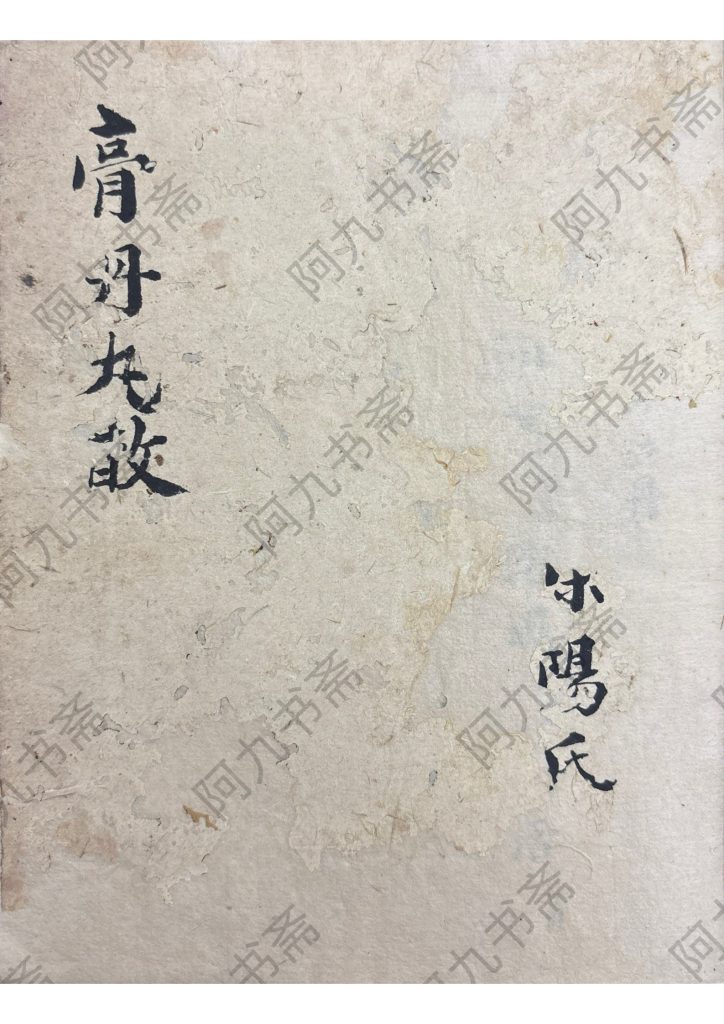 膏丹丸散
陽氏
阿九书斋